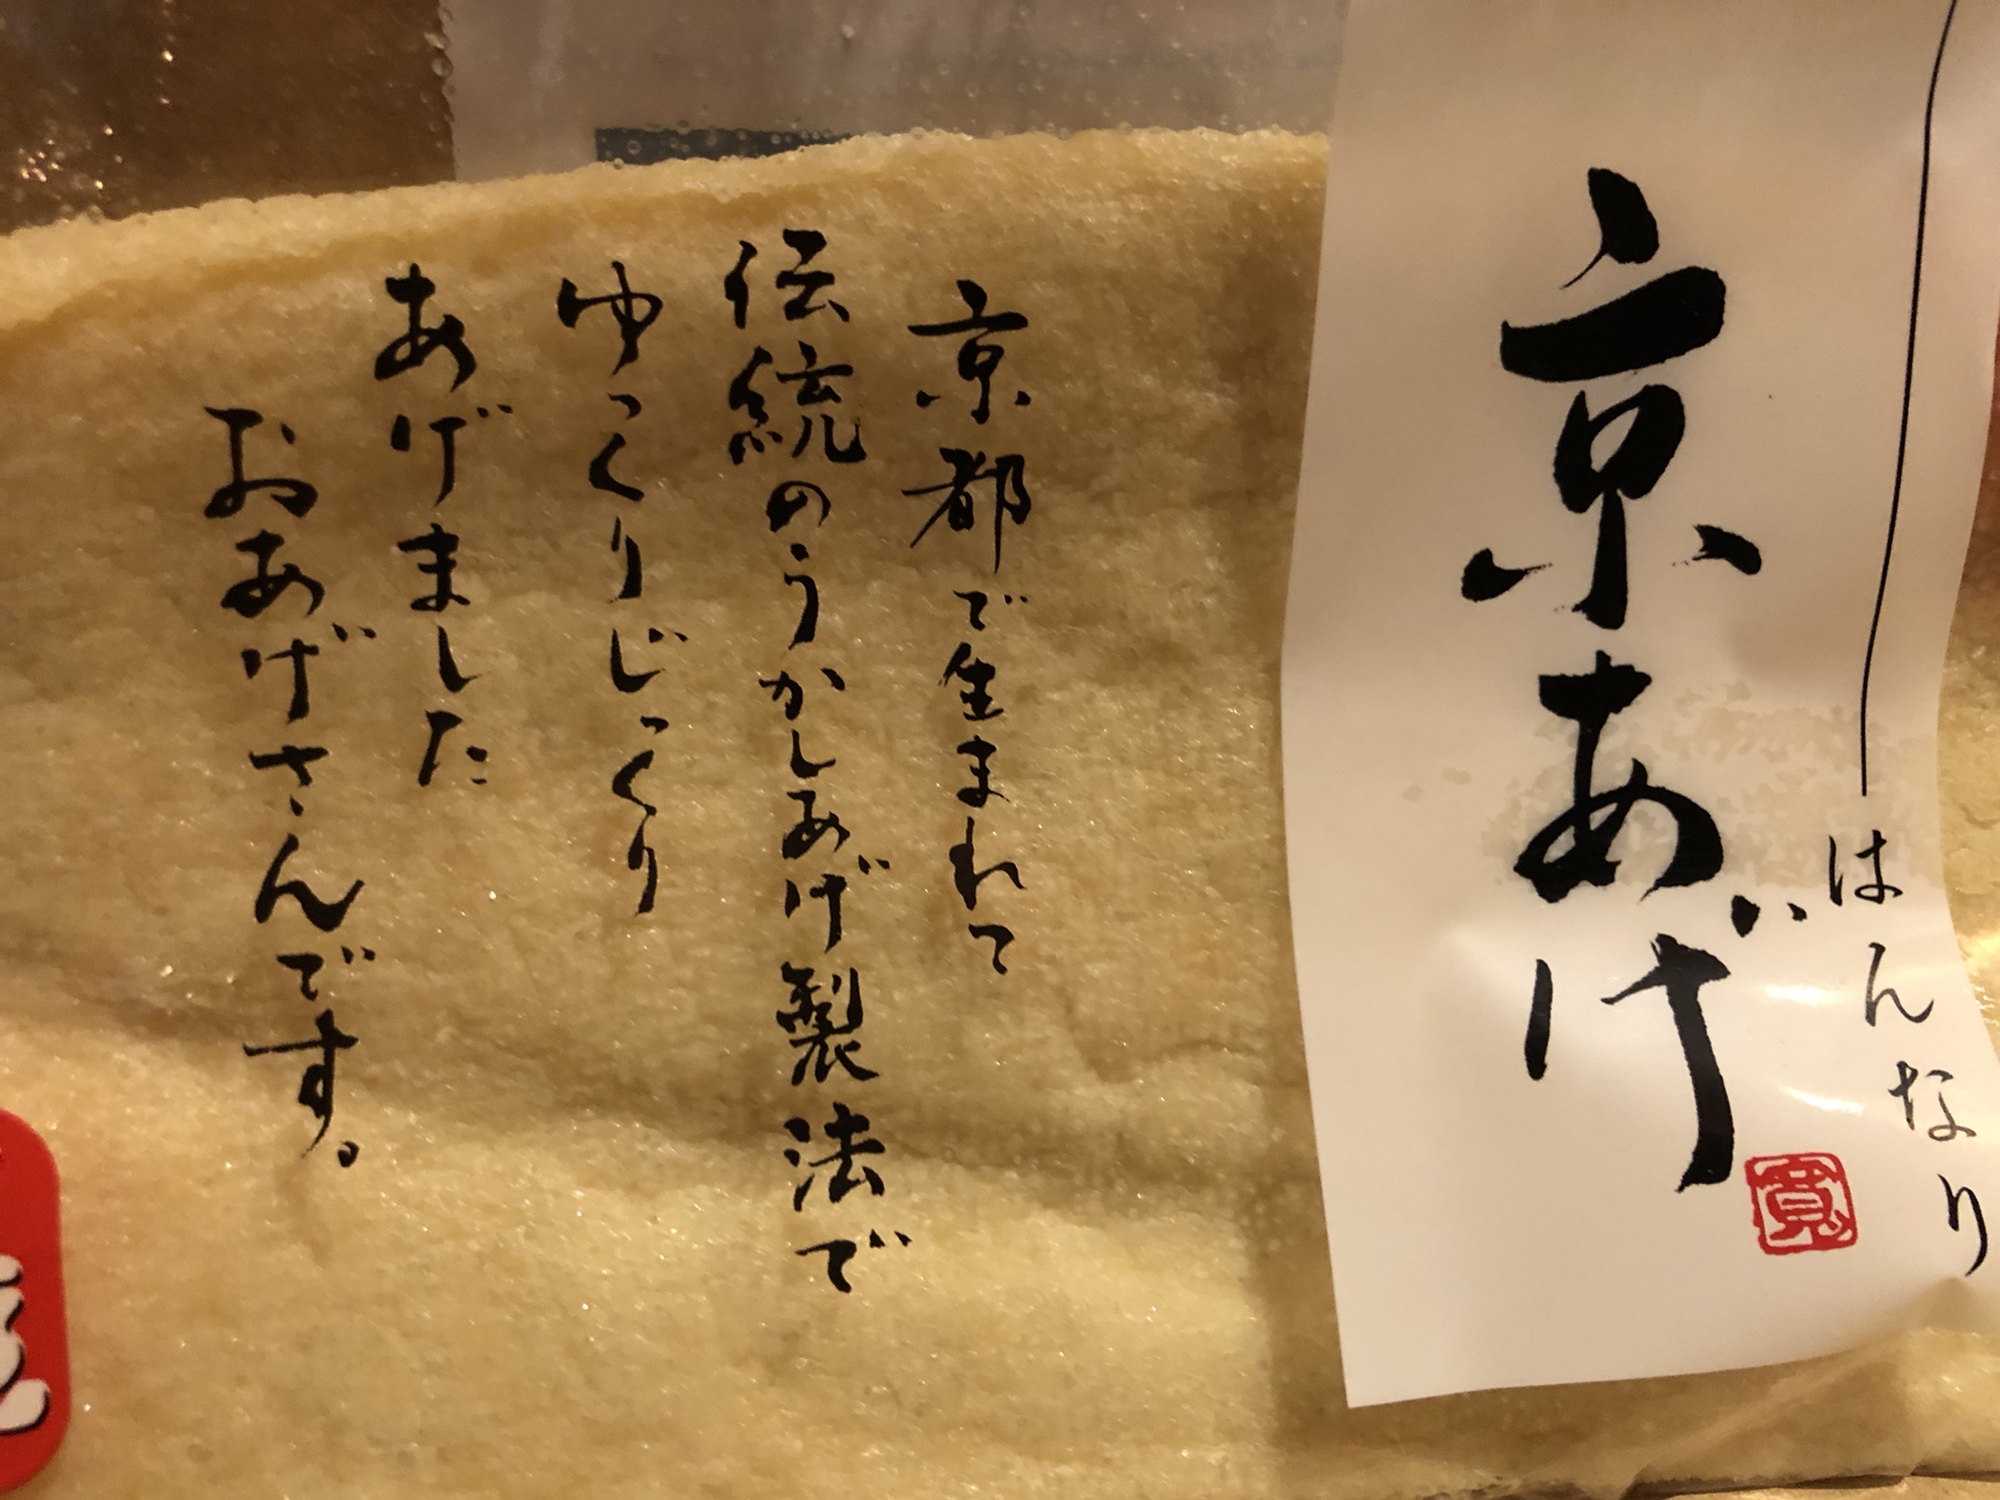 はんなり
京あげ
寛
京都で生まれて
伝統のうかしあげ製法で
ゆっくりじっくり
あげました
おあげさんです。